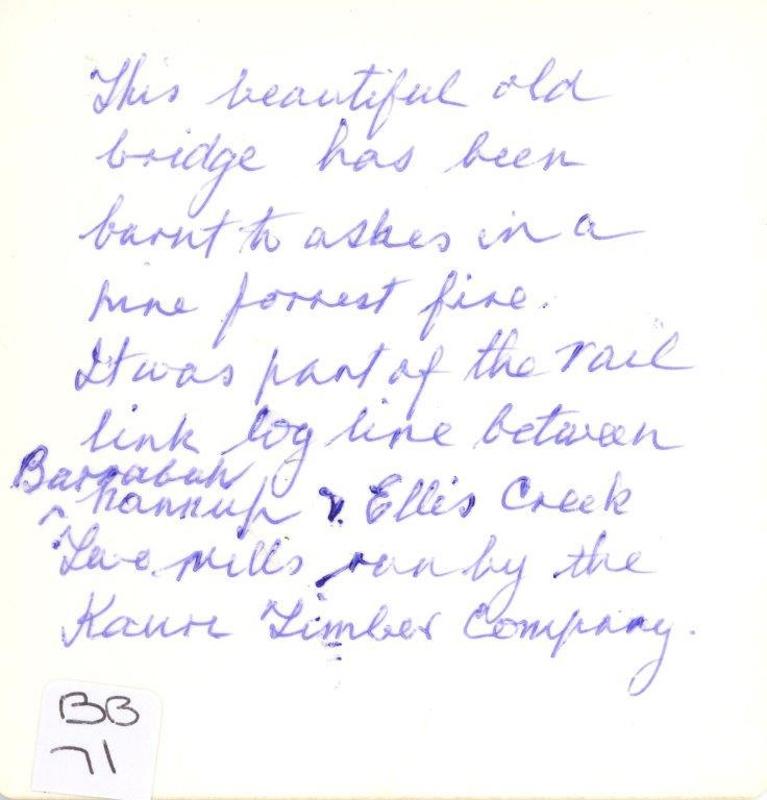 This beautiful old
bridge has been
burnt to ashes in a
pine forrest fire.
It was part of the rail
link log line between
Barrabup
^ Nannup & Ellis Creek
Two mills run by the
Kauri Timber Company.
BB
71